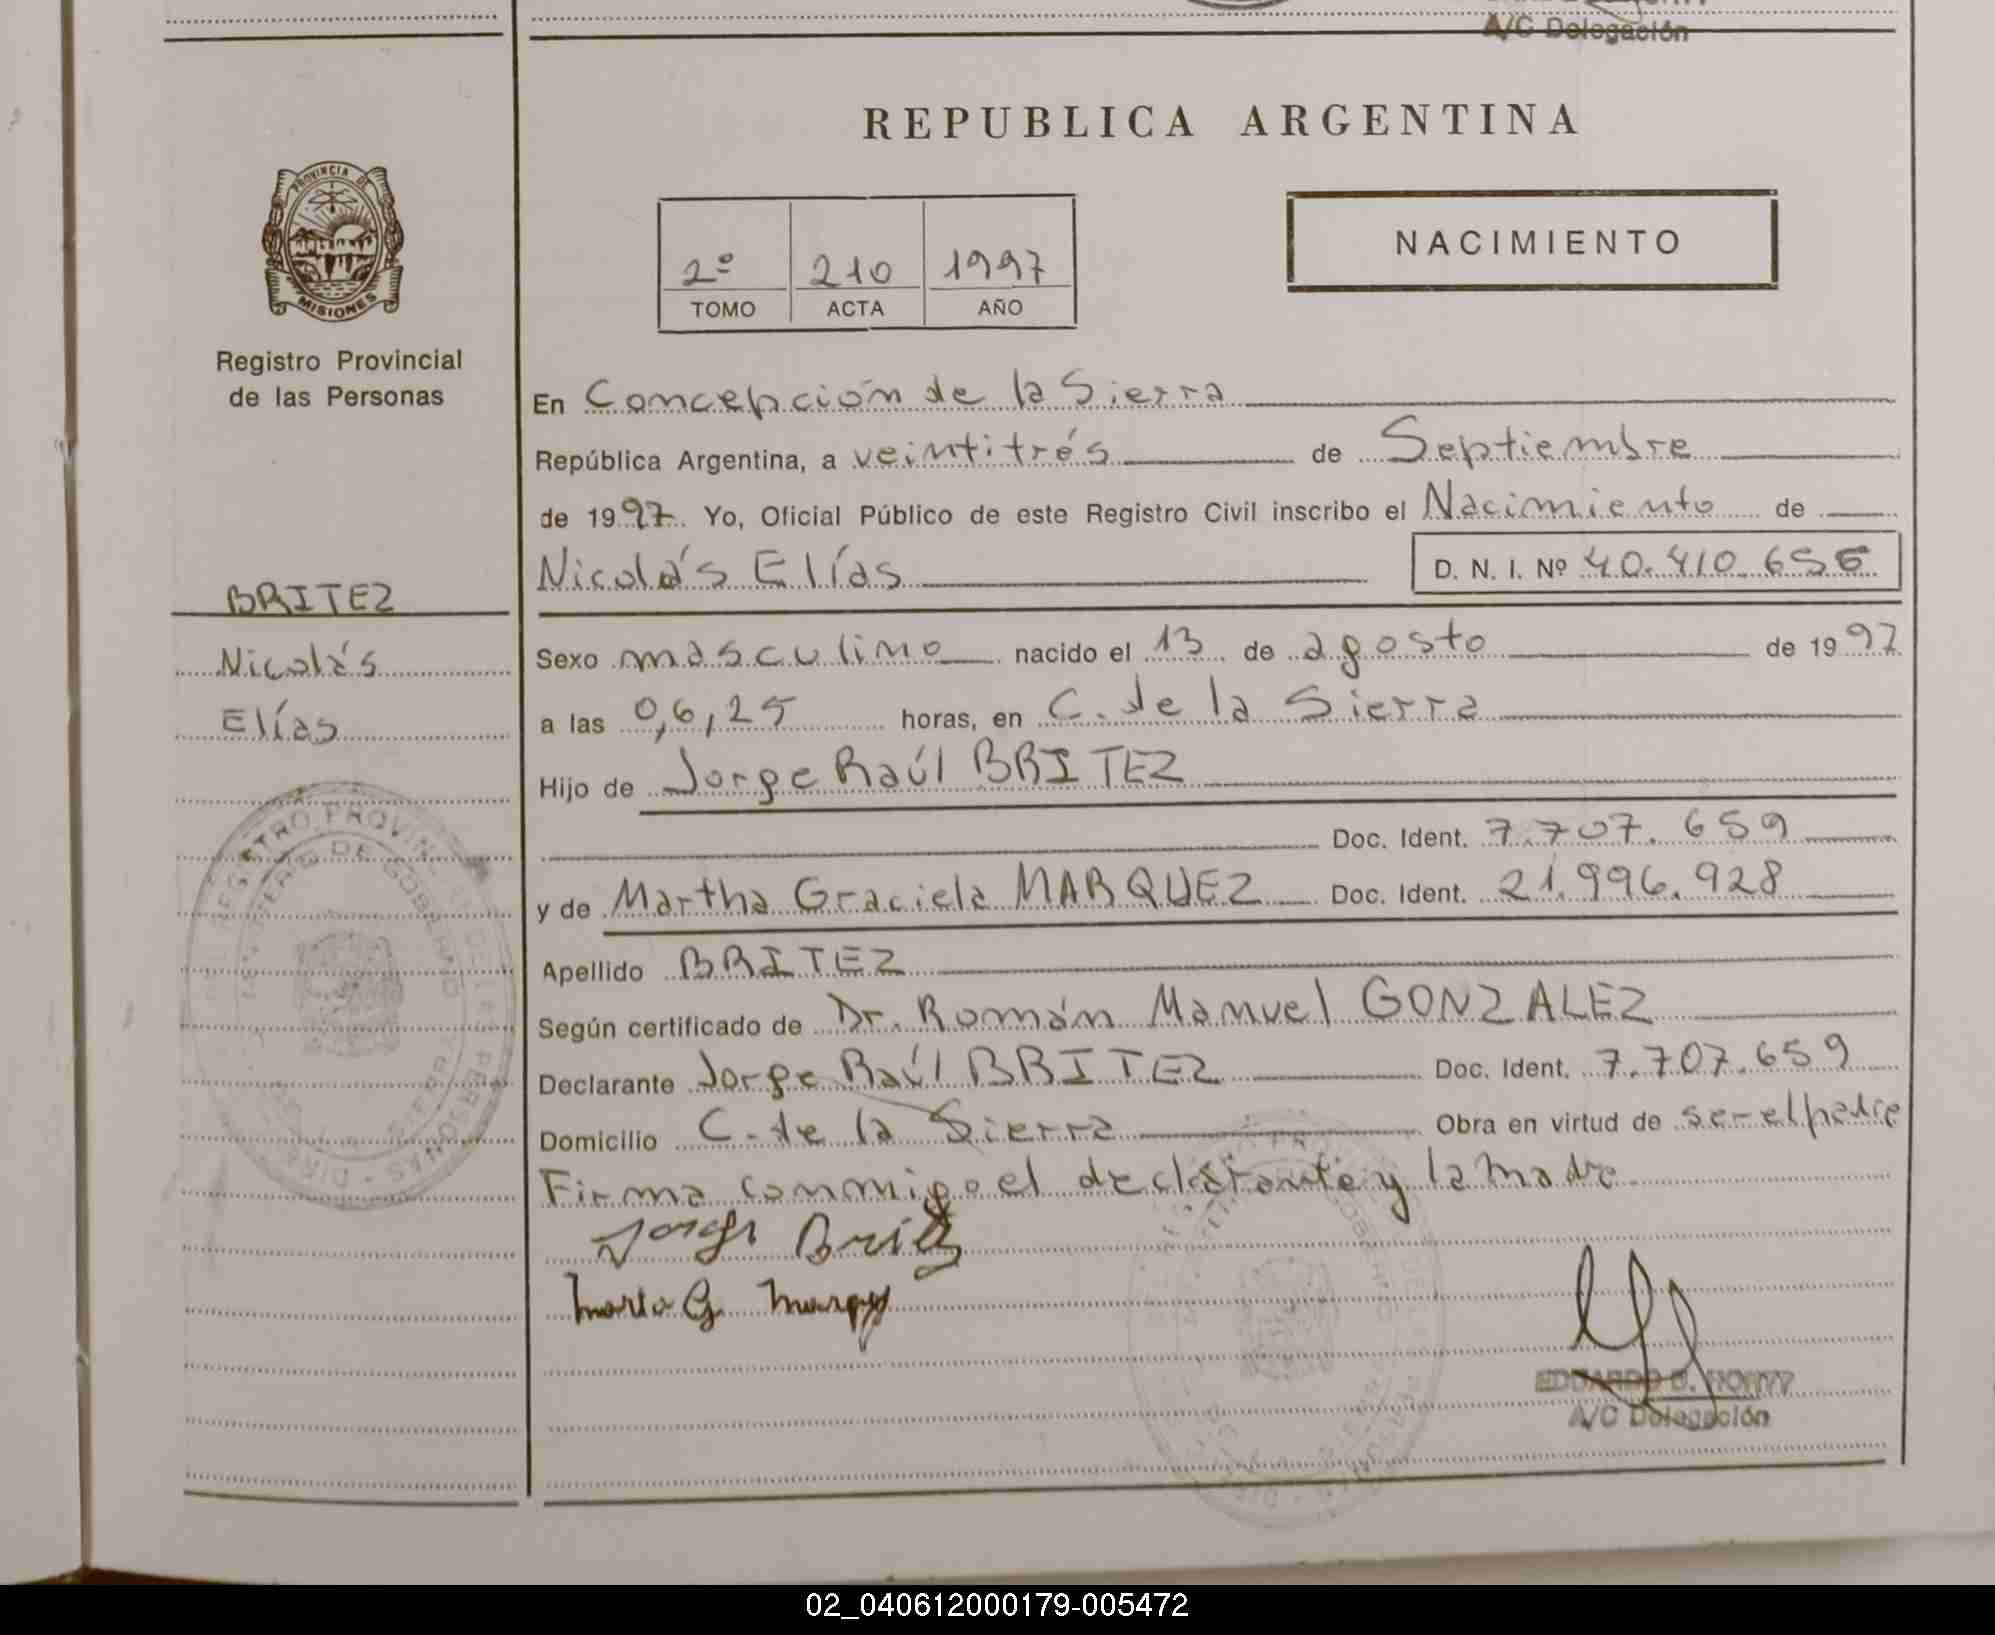 A/C Delegación
REPUBLICA ARGENTINA
PROVINCIA DE
MISIONES
Registro Provincial
de las Personas
2º 210 1997
TOMO ACTA AÑO
NACIMIENTO
En Concepción de la Sierra
República Argentina, a veintitrés de Septiembre
de 1997. Yo, Oficial Público de este Registro Civil inscribo el Nacimiento de
Nicolás Elías D. N. I. Nº 40.410.656
BRITEZ
Nicolás
Elías
Sexo masculino nacido el 13 de agosto de 1997
a las 0,6,25 horas, en C. de la Sierra
Hijo de Jorge Raúl BRITEZ
Doc. Ident. 7.707.659
y de Martha Graciela MARQUEZ Doc. Ident. 21.996.928
Apellido BRITEZ
Según certificado de Dr. Román Manuel GONZALEZ
Declarante Jorge Raúl BRITEZ Doc. Ident. 7.707.659
Domicilio C. de la Sierra Obra en virtud de ser el padre
Firma conmigo el declarante y la madre
Jorge Britez
A/C Delegación
02_040612000179-005472